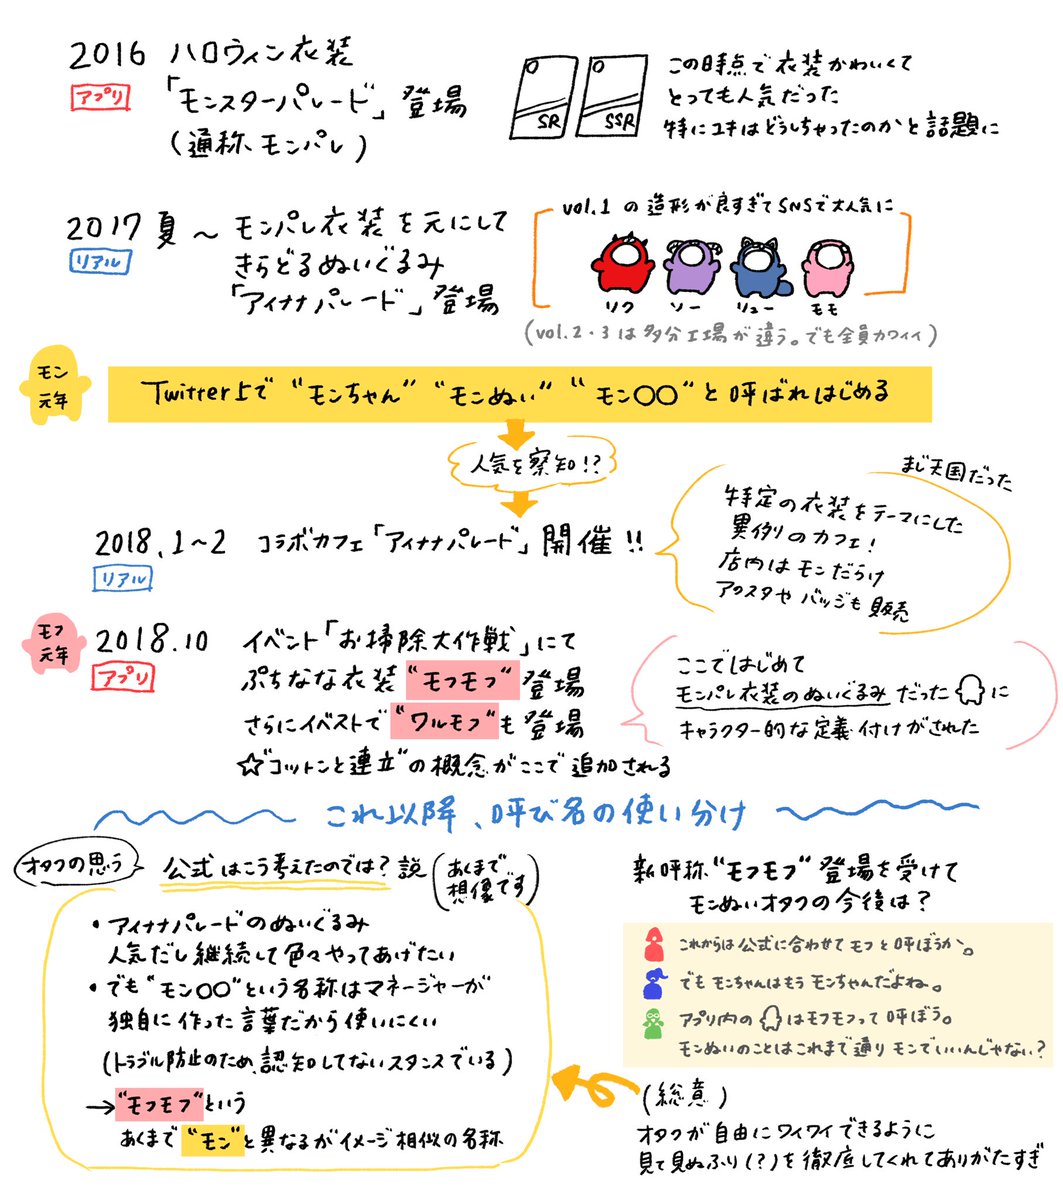 2016 ハロウィン衣装
アプリ
「モンスターパレード」登場
(通称、モンパレ)
SR
SSR
この時点で衣装かわいくて
とっても人気だった
特にユキはどうしちゃったのかと話題に
2017 夏 ~ モンパレ衣装を元にして
リアル
きらどるぬいぐるみ
「アイナナパレード」登場
vol.1 の造形が良すぎてSNSで大人気に
リク ソー リュー モモ
(vol.2・3は多分工場が違う。でも全員カワイイ)
モン
元年
Twitter上で “モンちゃん” “モンぬい” “モン○○” と呼ばれはじめる
人気を察知!?
2018.1~2 コラボカフェ「アイナナパレード」開催!!
リアル
まじ天国だった
特定の衣装をテーマにした
異例のカフェ!
店内はモンだらけ
アクスタやバッジも販売
モフ
元年
2018.10 イベント「お掃除大作戦」にて
アプリ
ぷちなな衣装“モフモフ”登場
さらにイベストで“ワルモフ”も登場
☆“コットンと連立”の概念がここで追加される
ここではじめて
モンパレ衣装のぬいぐるみだった に
キャラクター的な定義付けがされた
これ以降、呼び名の使い分け
オタクの思う
公式はこう考えたのでは?説
(あくまで
想像です)
・アイナナパレードのぬいぐるみ
人気だし継続して色々やってあげたい
・でも“モン○○”という名称はマネージャーが
独自に作った言葉だから使いにくい
(トラブル防止のため、認知してないスタンスでいる)
→“モフモフ”という
あくまで“モン”と異なるがイメージ相似の名称
新呼称“モフモフ”登場を受けて
モンぬいオタクの今後は?
これからは公式に合わせてモフと呼ぼうか。
でもモンちゃんはもうモンちゃんだよね。
アプリ内の はモフモフって呼ぼう。
モンぬいのことはこれまで通りモンでいいんじゃない?
(総意)
オタクが自由にワイワイできるように
見て見ぬふり(?)を徹底してくれてありがたすぎ